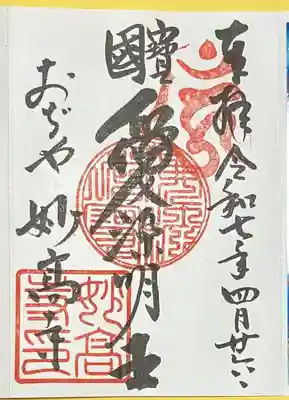 奉拝 令和七年四月廿六日
國寳
愛染明王
おぢや 妙高寺